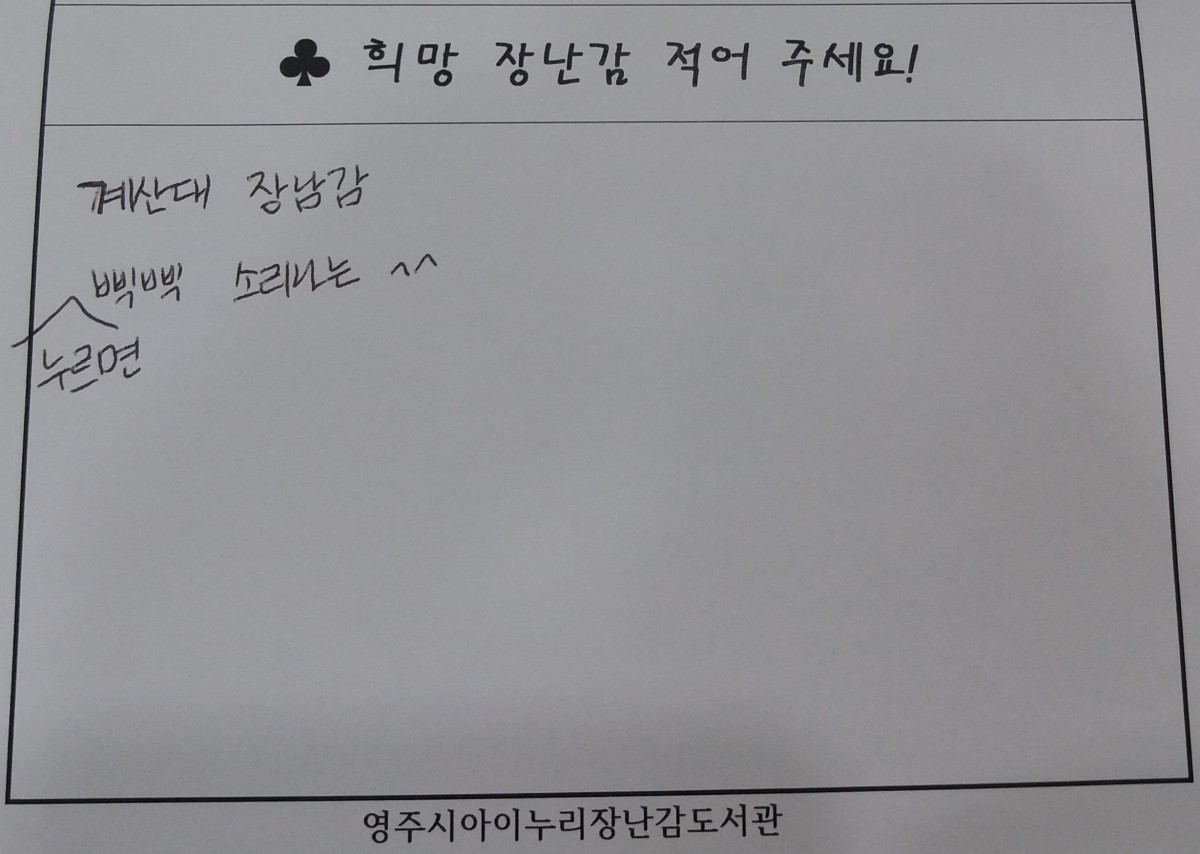 ♣ 희망 장난감 적어 주세요!
계산대 장남감
삑삑 소리나는 ^^
누르면
영주시아이누리장난감도서관